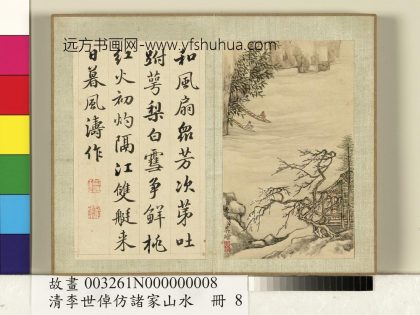 远方书画网- www.yfshuhua.com
和風扇眾芳次苐吐
跗萼梨白雪争鲜桃
红火初灼隔江雙艇来
日暮風濤作
故畫 003261N000000008
清李世倬仿諸家山水 冊 8